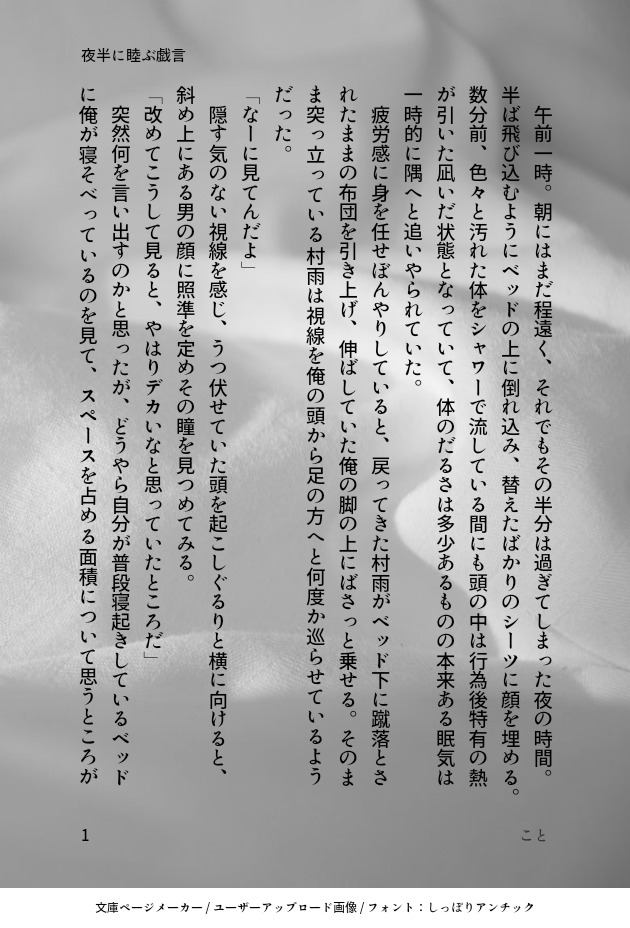 夜半に睦ぶ戯言
　午前一時。朝にはまだ程遠く、それでもその半分は過ぎてしまった夜の時間。
半ば飛び込むようにベッドの上に倒れ込み、替えたばかりのシーツに顔を埋める。
数分前、色々と汚れた体をシャワーで流している間にも頭の中は行為後特有の熱
が引いた凪いだ状態となっていて、体のだるさは多少あるものの本来ある眠気は
一時的に隅へと追いやられていた。
　疲労感に身を任せぼんやりしていると、戻ってきた村雨がベッド下に蹴落とさ
れたままの布団を引き上げ、伸ばしていた俺の脚の上にばさっと乗せる。そのま
ま突っ立っている村雨は視線を俺の頭から足の方へと何度か巡らせているよう
だった。
「なーに見てんだよ」
　隠す気のない視線を感じ、うつ伏せていた頭を起こしぐるりと横に向けると、
斜め上にある男の顔に照準を定めその瞳を見つめてみる。
「改めてこうして見ると、やはりデカいなと思っていたところだ」
　突然何を言い出すのかと思ったが、どうやら自分が普段寝起きしているベッド
に俺が寝そべっているのを見て、スペースを占める面積について思うところが
1
こと
文庫ページメーカー / ユーザーアップロード画像 / フォント：しっぽりアンチック